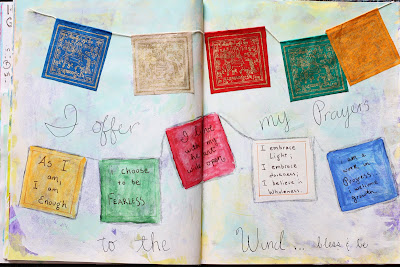 I offer my Prayers
As I
am,
I am
Enough
I choose
to be
FEARLESS
I live
with my
heart
wide open
I embrace
Light,
I embrace
darkness,
I believe in
Wholeness
I am a
work in
Progress
I welcome
growth
to the Wind... bless & be